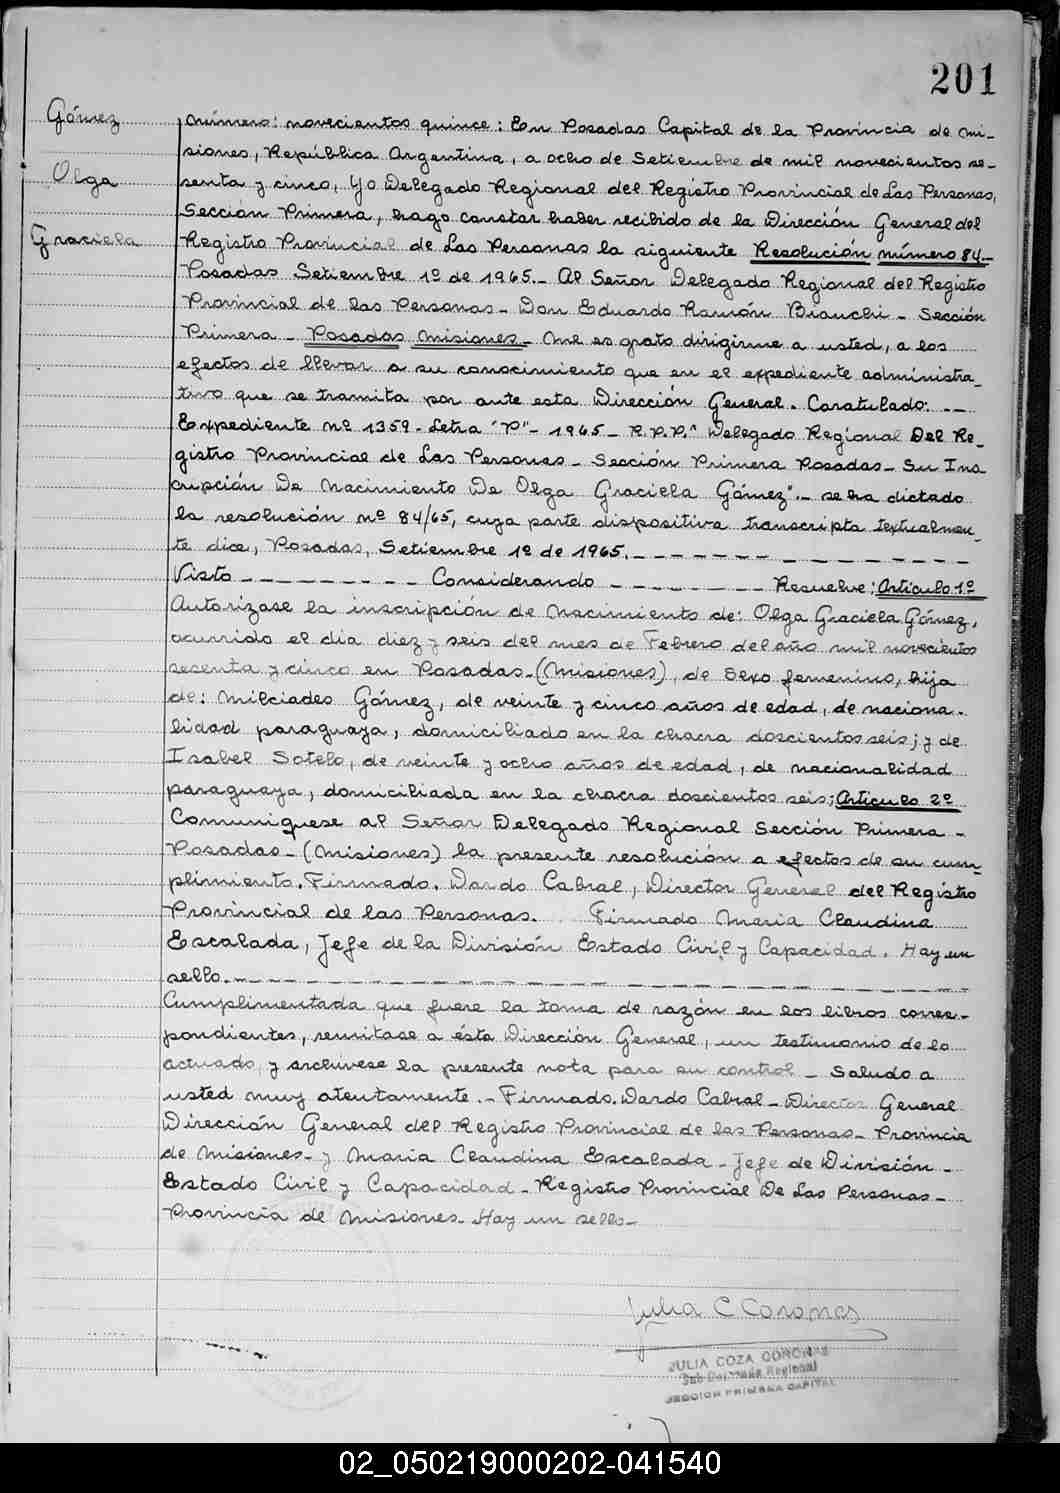 201
Gómez
Olga
Graciela
Número: novecientos quince: En Posadas Capital de la Provincia de Mi-
siones, República Argentina, a ocho de Setiembre de mil novecientos se-
senta y cinco, Yo Delegado Regional del Registro Provincial de Las Personas,
Sección Primera, hago constar haber recibido de la Dirección General del
Registro Provincial de Las Personas la siguiente Resolución número 84.-
Posadas Setiembre 1º de 1965.- Al Señor Delegado Regional del Registro
Provincial de las Personas- Don Eduardo Ramón Bianchi- Sección
Primera- Posadas Misiones- Me es grato dirigirme a usted, a los
efectos de llevar a su conocimiento que en el expediente administra-
tivo que se tramita por ante esta Dirección General. Caratulado: --
Expediente nº 1359- Letra "P"- 1965- R.P.P." Delegado Regional Del Re-
gistro Provincial de Las Personas- Sección Primera Posadas- Su Ins
cripción De Nacimiento De Olga Graciela Gómez".- se ha dictado
la resolución nº 84/65, cuya parte dispositiva transcripta textualmen-
te dice, Posadas, Setiembre 1º de 1965.- - - - - - - - - - - - -
Visto - - - - - - - - - Considerando - - - - - - - - - Resuelve: Artículo 1º
Autorizase la inscripción de Nacimiento de: Olga Graciela Gómez,
ocurrido el dia diez y seis del mes de Febrero del año mil novecientos
secenta y cinco en Posadas-(Misiones), de Sexo femenino, hija
de: Milciades Gómez, de veinte y cinco años de edad, de naciona-
lidad paraguaya, domiciliado en la chacra doscientos seis; y de
Isabel Sotelo, de veinte y ocho años de edad, de nacionalidad
paraguaya, domiciliada en la chacra doscientos seis; Artículo 2º
Comuniquese al Señor Delegado Regional Sección Primera -
Posadas- (Misiones) la presente resolución a efectos de su cum-
plimiento. Firmado. Dardo Cabral, Director General del Registro
Provincial de las Personas. Firmado Maria Claudina
Escalada, Jefe de la División Estado Civil y Capacidad. Hay un
sello.- - - - - - - - - - - - - - - - - - - - - - - -
Cumplimentada que fuere la toma de razón en los libros corres-
pondientes, remitase a ésta Dirección General, un testimonio de lo
actuado, y archivese la presente nota para su control- Saludo a
usted muy atentamente.- Firmado. Dardo Cabral- Director General
Dirección General del Registro Provincial de las Personas- Provincia
de Misiones- y Maria Claudina Escalada- Jefe de División-
Estado Civil y Capacidad- Registro Provincial De Las Personas-
Provincia de Misiones- Hay un sello-
Julia C Coronas
JULIA COZA CORONAS
Sub Delegada Regional
SECCION PRIMERA CAPITAL
02_050219000202-041540